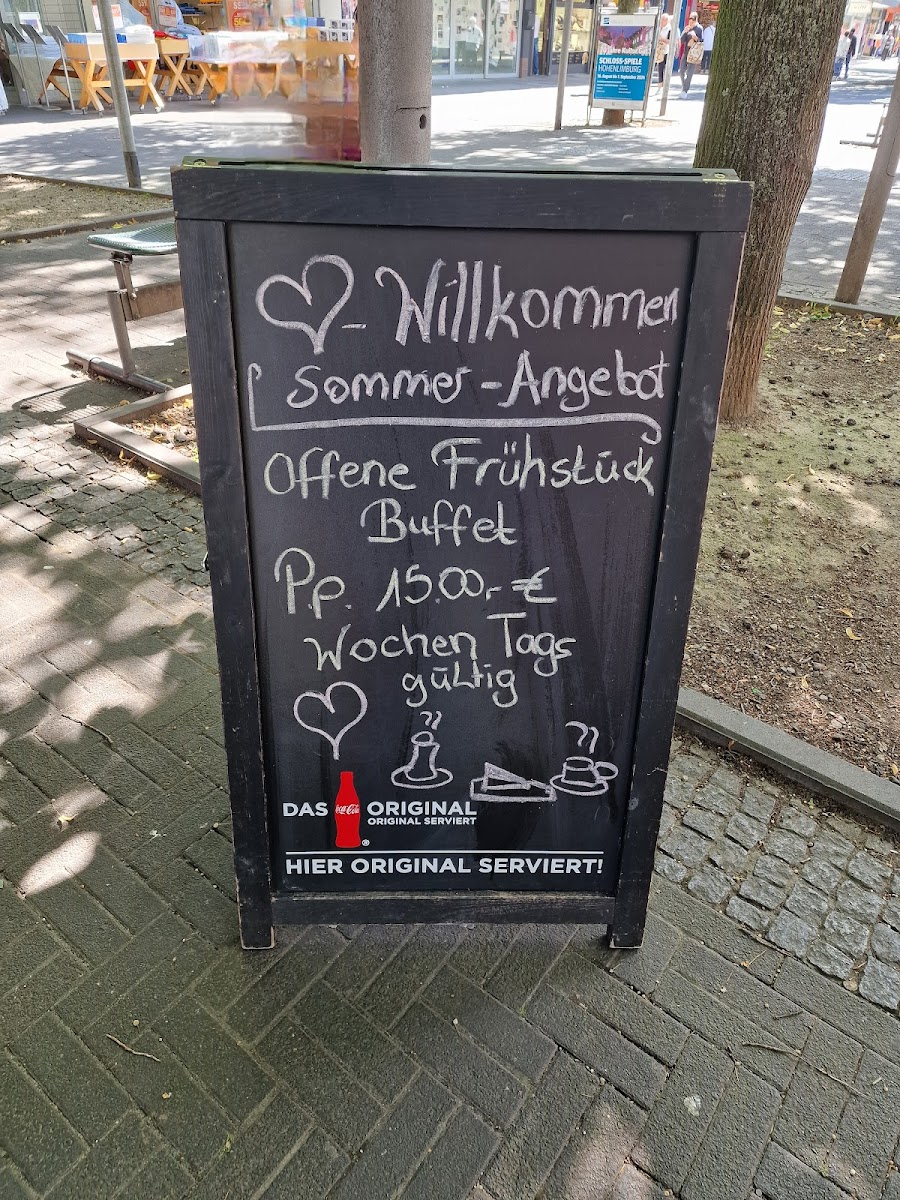 Jahre Kultur
SCHLOSS-SPIELE
HOHENLIMBURG
Willkommen
Sommer-Angebot
Offene Frühstück
Buffet
P.p. 15.00,- €
Wochen Tags
gültig
DAS Coca-Cola ORIGINAL
ORIGINAL SERVIERT
HIER ORIGINAL SERVIERT!